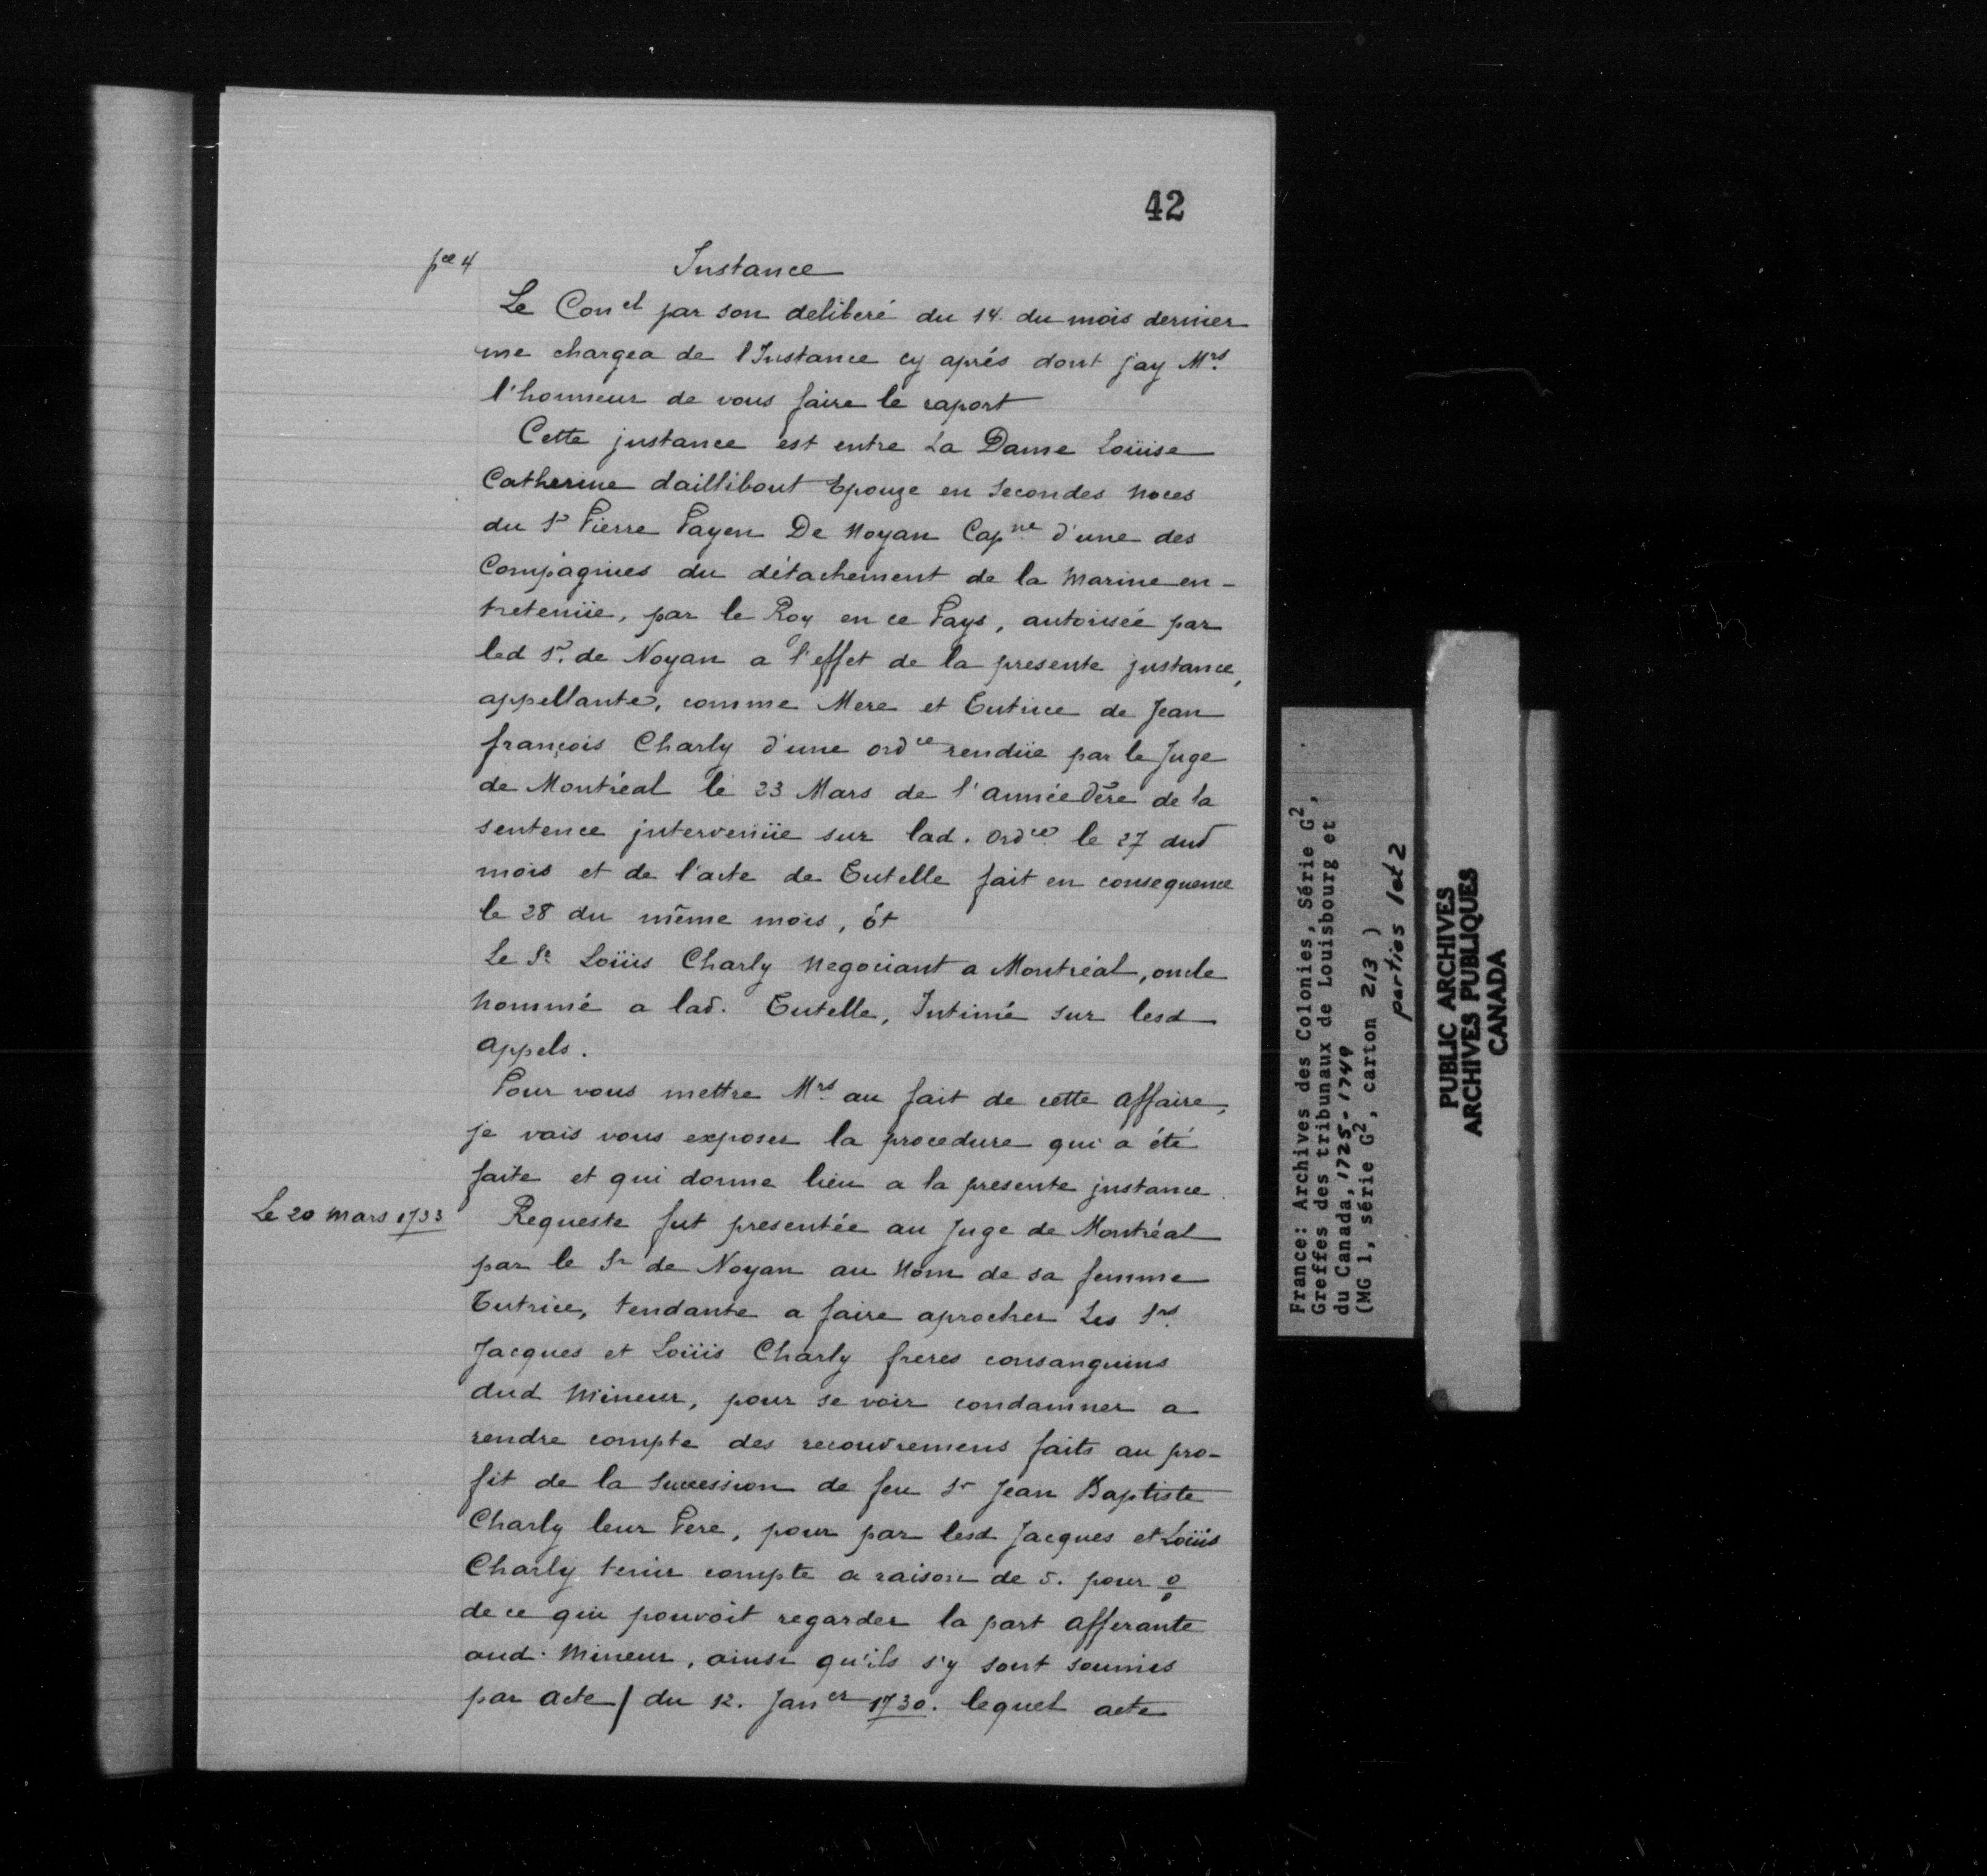 42
pce 4
Instance
Le Conel par son deliberé du 14. du mois dernier
me chargea de l'Instance cy aprés dont jay Mrs.
l'honneur de vous faire le raport
Cette justance est entre La Dame Loüise
Catherine daillibout Epouze en Secondes Noces
du Sr Pierre Payen De Noyan Capne d'une des
Compagnies du détachement de la Marine en-
tretenüe, par le Roy en ce Pays, autorisée par
led Sr. de Noyan a l'effet de la presente justance,
appellante, comme Mere et Tutrice de Jean
françois Charly d'une ordce rendüe par le Juge
de Montréal le 23 Mars de l'année dēre de la
sentence jntervenüe sur lad. Ordce. le 27 dud
mois et de l'acte de Tutelle fait en consequence
le 28 du même mois, ét
Le Sr Loüis Charly Negociant a Montréal, oncle
Nommé a lad. Tutelle, Intimé sur lesd
appels.
Pour vous mettre Mrs. au fait de cette affaire,
je vais vous exposer la procedure qui a été
faite et qui donne lieu a la presente justance.
Le 20 Mars 1733
Requeste fut presentée au Juge de Montréal
par le Sr de Noyan au Nom de sa femme
Tutrice, tendante a faire aprocher Les Srs.
Jacques et Loüis Charly freres consanguins
dud Mineur, pour se voir condamner a
rendre compte des recouvremens faits au pro-
fit de la Succession de feu Sr Jean Baptiste
Charly leur Pere, pour par lesd Jacques et Loüis
Charly tenir compte a raison de 5. pour %
de ce qui pouvoit regarder la part afferante
aud. Mineur, ainsi qu'ils s'y sont soumis
par acte / du 12. Janer 1730. lequel acte
France: Archives des Colonies, Série G2,
Greffes des tribunaux de Louisbourg et
du Canada, 1725-1749
(MG 1, série G2, carton 213 )
parties 1et 2
PUBLIC ARCHIVES
ARCHIVES PUBLIQUES
CANADA